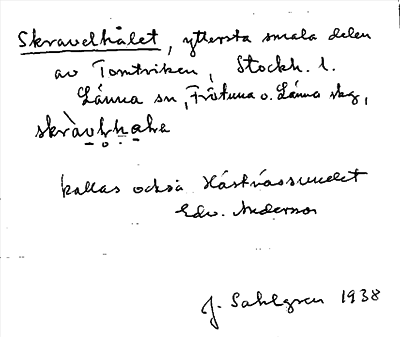 Skravelhålet, yttersta smala delen
av Tomtviken, Stockh. l.
Länna sn, Frötuna o. Länna skg,
kallas också Hästnässundet
Edv. Andersson
J. Sahlgren 1938